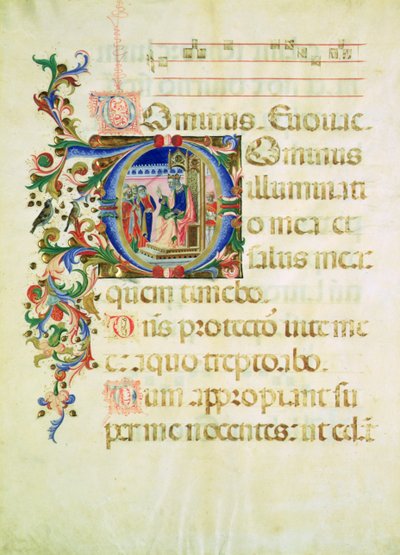 Dominus. Euouae.
Dominus
illuminati
o mea et
salus mea:
quem timebo.
Dns protecto vite me
e: a quo trepidabo.
Dum appropiant su
per me nocentes: ut edāt